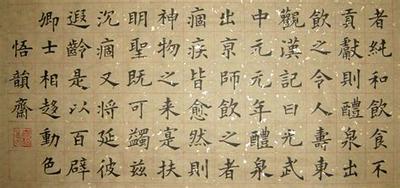 者純和飲食不
貢獻則醴泉出
飲之令人壽東
觀漢記曰光武
中元元年醴泉
出京師飲之者
痼疾皆愈然則
神物之来寔扶
明聖既可蠲兹
沉痼又将延彼
遐齡是以百辟
卿士相趍動色
悟韻齋